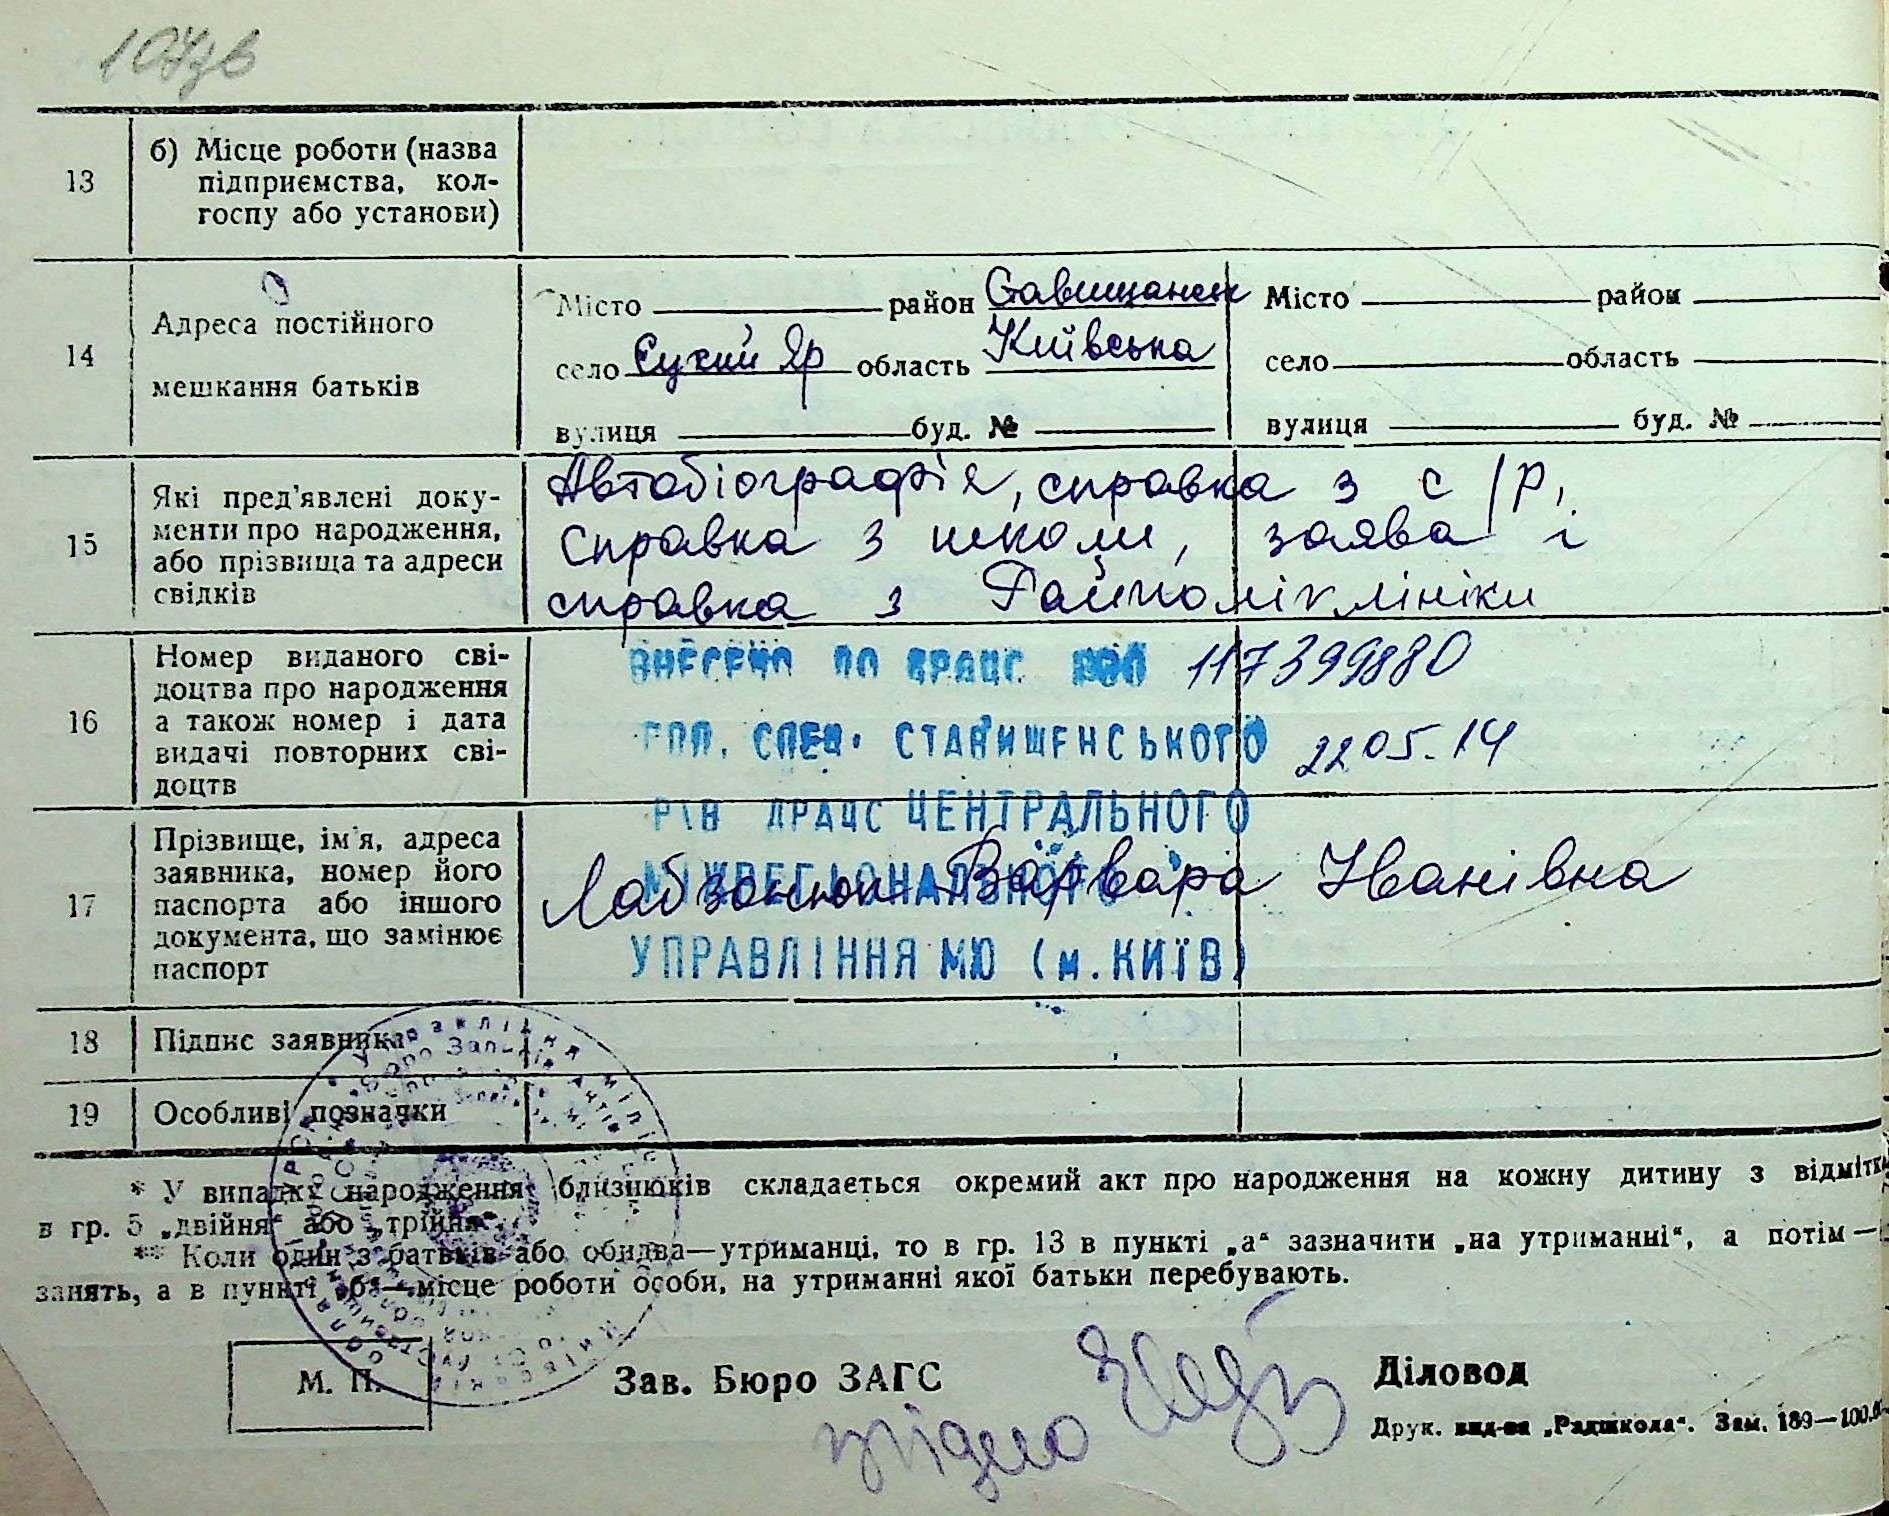 107зв
13
б) Місце роботи (назва
підприємства, кол-
госпу або установи)
14
Адреса постійного
мешкання батьків
Місто район Ставищанськ
село Єцкий Яр область Київська
вулиця буд. №
Місто район
село область
вулиця буд. №
15
Які пред'явлені доку-
менти про народження,
або прізвища та адреси
свідків
Автобіографія, справка з с/р,
справка з школи, заява і
справка з Райполіклініки
16
Номер виданого сві-
доцтва про народження
а також номер і дата
видачі повторних сві-
доцтв
ВНЕСЕНО ДО ДРАЦС 117399880
ГОЛ. СПЕЦ. СТАВИЩЕНСЬКОГО 22 05.14
Р\Н ДРАЦС ЦЕНТРАЛЬНОГО
МІЖРЕГІОНАЛЬНОГО
УПРАВЛІННЯ МЮ (м. КИЇВ)
17
Прізвище, ім'я, адреса
заявника, номер його
паспорта або іншого
документа, що замінює
паспорт
Варвара Іванівна
18
Підпис заявника
19
Особливі позначки
* У випадку народження близнюків складається окремий акт про народження на кожну дитину з відмітк
в гр. 5 „двійня“ або „трійня“.
** Коли один з батьків або обидва—утриманці, то в гр. 13 в пункті „а“ зазначити „на утриманні“, а потім —
занять, а в пункті „б“—місце роботи особи, на утриманні якої батьки перебувають.
М. П.
Зав. Бюро ЗАГС
Діловод
Друк. вид-ва „Радшкола“. Зам. 189—100.00